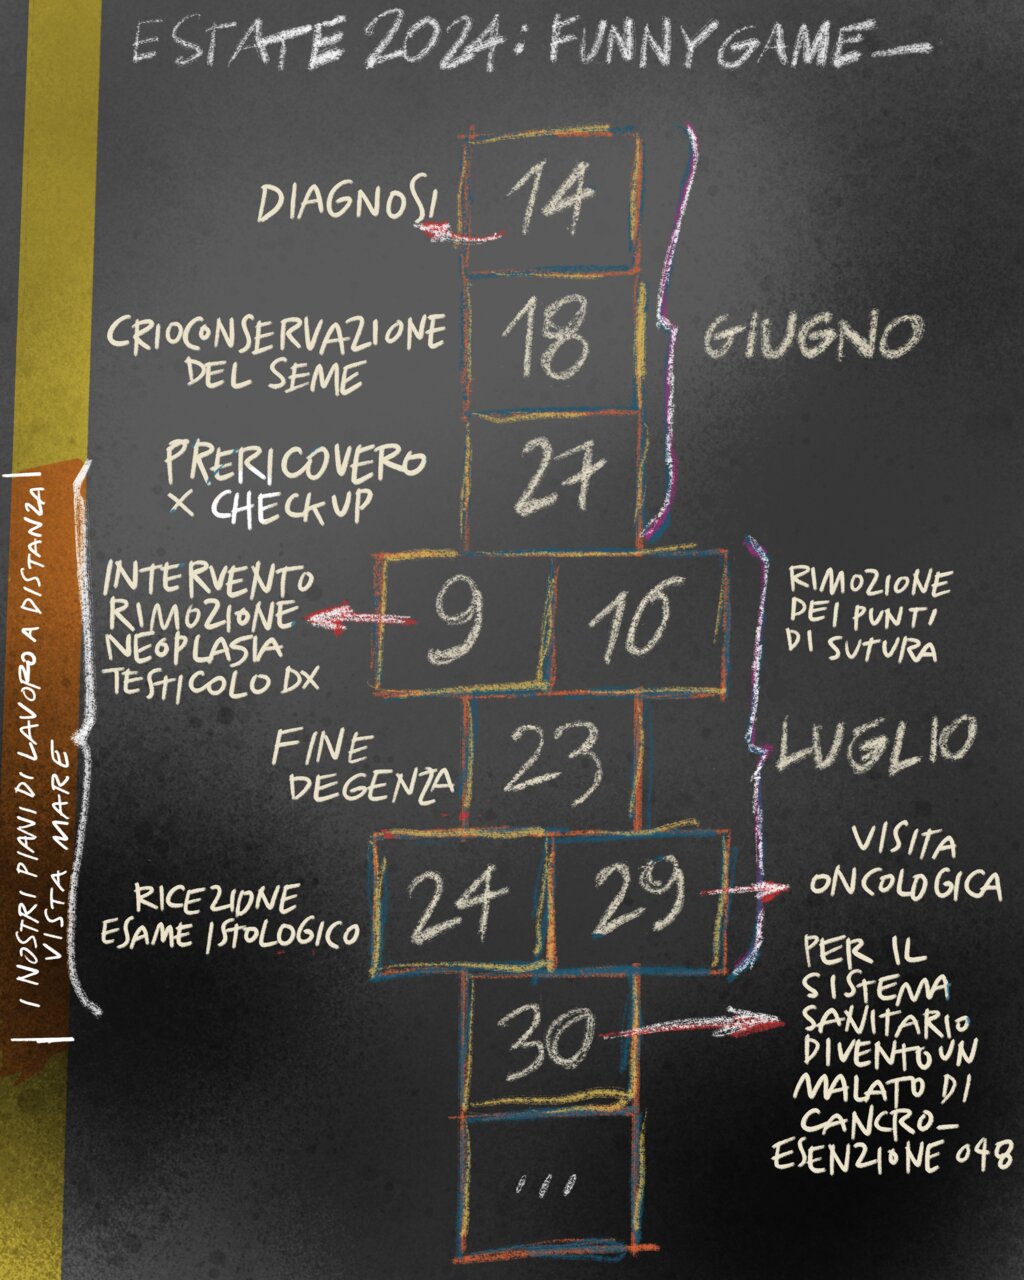 ESTATE 2024: FUNNYGAME_
DIAGNOSI
14
CRIOCONSERVAZIONE
DEL SEME
18
GIUGNO
PRERICOVERO
X CHECKUP
27
INTERVENTO
RIMOZIONE
NEOPLASIA
TESTICOLO DX
9
16
RIMOZIONE
DEI PUNTI
DI SUTURA
FINE
DEGENZA
23
LUGLIO
RICEZIONE
ESAME ISTOLOGICO
24
29
VISITA
ONCOLOGICA
30
PER IL
SISTEMA
SANITARIO
DIVENTO UN
MALATO DI
CANCRO_
ESENZIONE 048
...
I NOSTRI PIANI DI LAVORO A DISTANZA
VISTA MARE